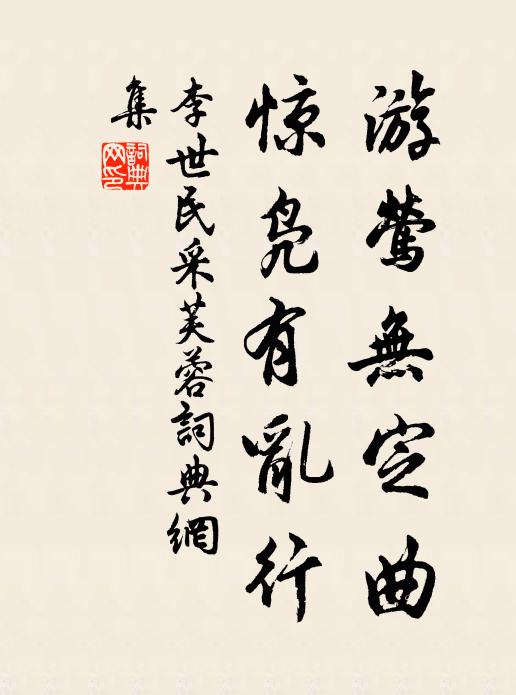 游鶯無定曲
惊凫有亂行
李世民采芙蓉詞典網
集
詞典
网印